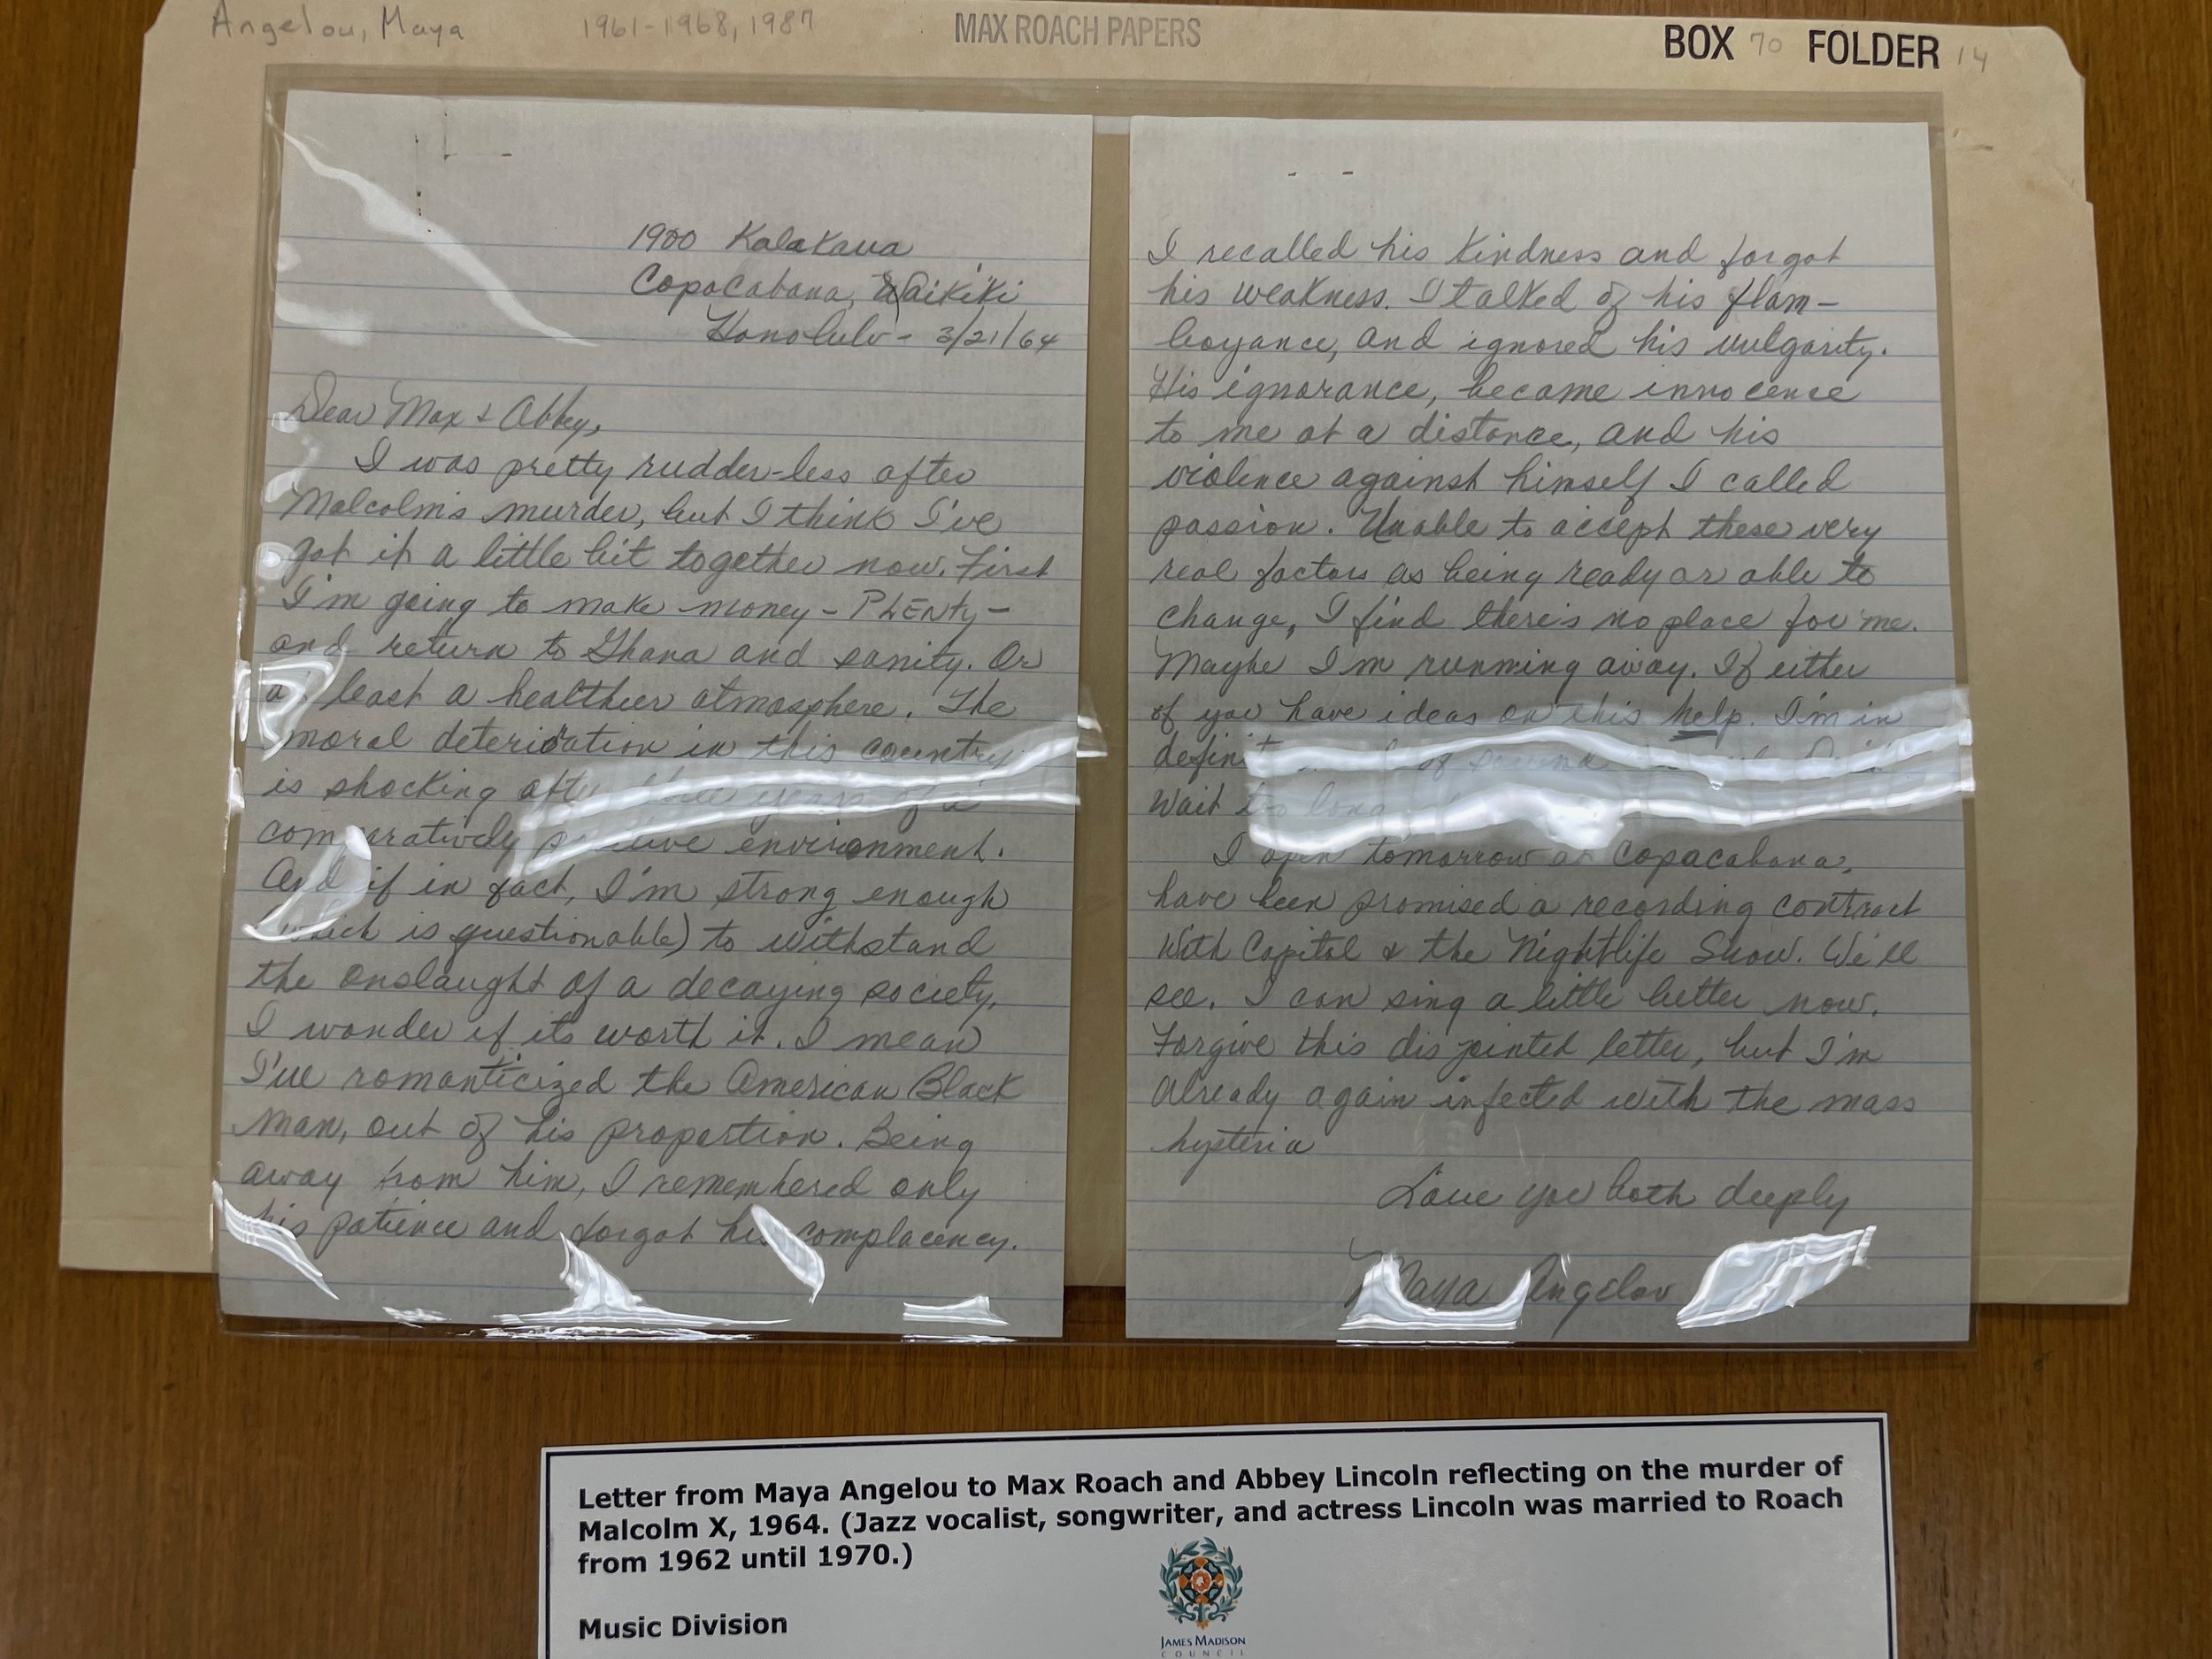 Angelou, Maya 1961-1968, 1987 MAX ROACH PAPERS BOX 70 FOLDER 14
1900 Kalakaua
Copacabana, Waikiki
Honolulu - 3/21/64
Dear Max & Abbey,
I was pretty rudder-less after
Malcolm's murder, but I think I've
got it a little bit together now. First
I'm going to make money - PLENty -
and return to Ghana and sanity. Or
at least a healthier atmosphere. The
moral deterioration in this country
is shocking after three years of a
comparatively environment.
And if in fact, I'm strong enough
(which is questionable) to withstand
the onslaught of a decaying society,
I wonder if its worth it. I mean
I've romanticized the American Black
Man, out of his proportion. Being
away from him, I remembered only
his patience and forgot his complacency.
I recalled his kindness and forgot
his weakness. I talked of his flam-
boyance, and ignored his vulgarity.
His ignorance, became innocence
to me at a distance, and his
violence against himself I called
passion. Unable to accept these very
real factors as being ready or able to
change, I find there's no place for me.
Maybe I'm running away. If either
of you have ideas on this help. I'm in
of
Wait too long
I open tomorrow at Copacabana,
have been promised a recording contract
With Capitol & the Nightlife Show. We'll
see. I can sing a little better now.
Forgive this disjointed letter, but I'm
Already again infected with the mass
hysteria
Love you both deeply
Maya Angelou
Letter from Maya Angelou to Max Roach and Abbey Lincoln reflecting on the murder of
Malcolm X, 1964. (Jazz vocalist, songwriter, and actress Lincoln was married to Roach
from 1962 until 1970.)
Music Division
JAMES MADISON
COUNCIL